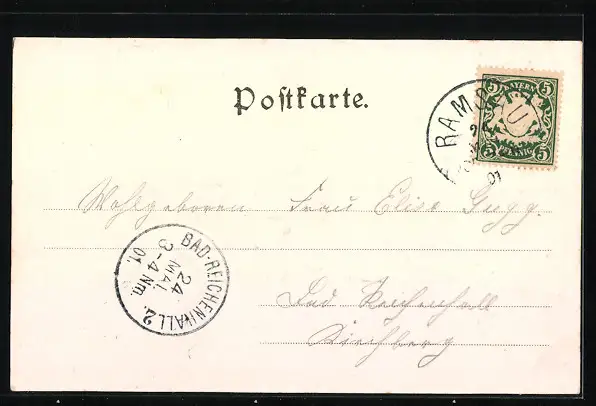 Postkarte.
BAYERN
5 5
5 5
PFENNIG
RAMSAU
24
01
Wohlgeboren Frau Elise Gugg.
BAD-REICHENHALL 2.
24
MAI
3-4 Nm.
01
Bad Reichenhall
Kirchberg